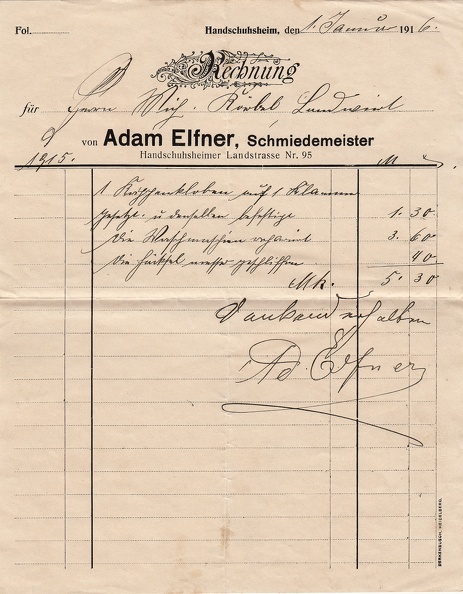 Fol.
Handschuhsheim, den 1. Januar 1916.
Rechnung
für Herrn Mich. Körbel, Landwirt
von Adam Elfner, Schmiedemeister
Handschuhsheimer Landstrasse Nr. 95
1915. M
1 auf 1 Klamm
gesetzt u denselben befestigt 1. 30
Die Waschmaschien repariert 3. 60
Die Häcksel messer geschliffen 40
Mk. 5. 30
Dankend erhalten
Ad. Elfner
BERKENBUSCH, HEIDELBERG.